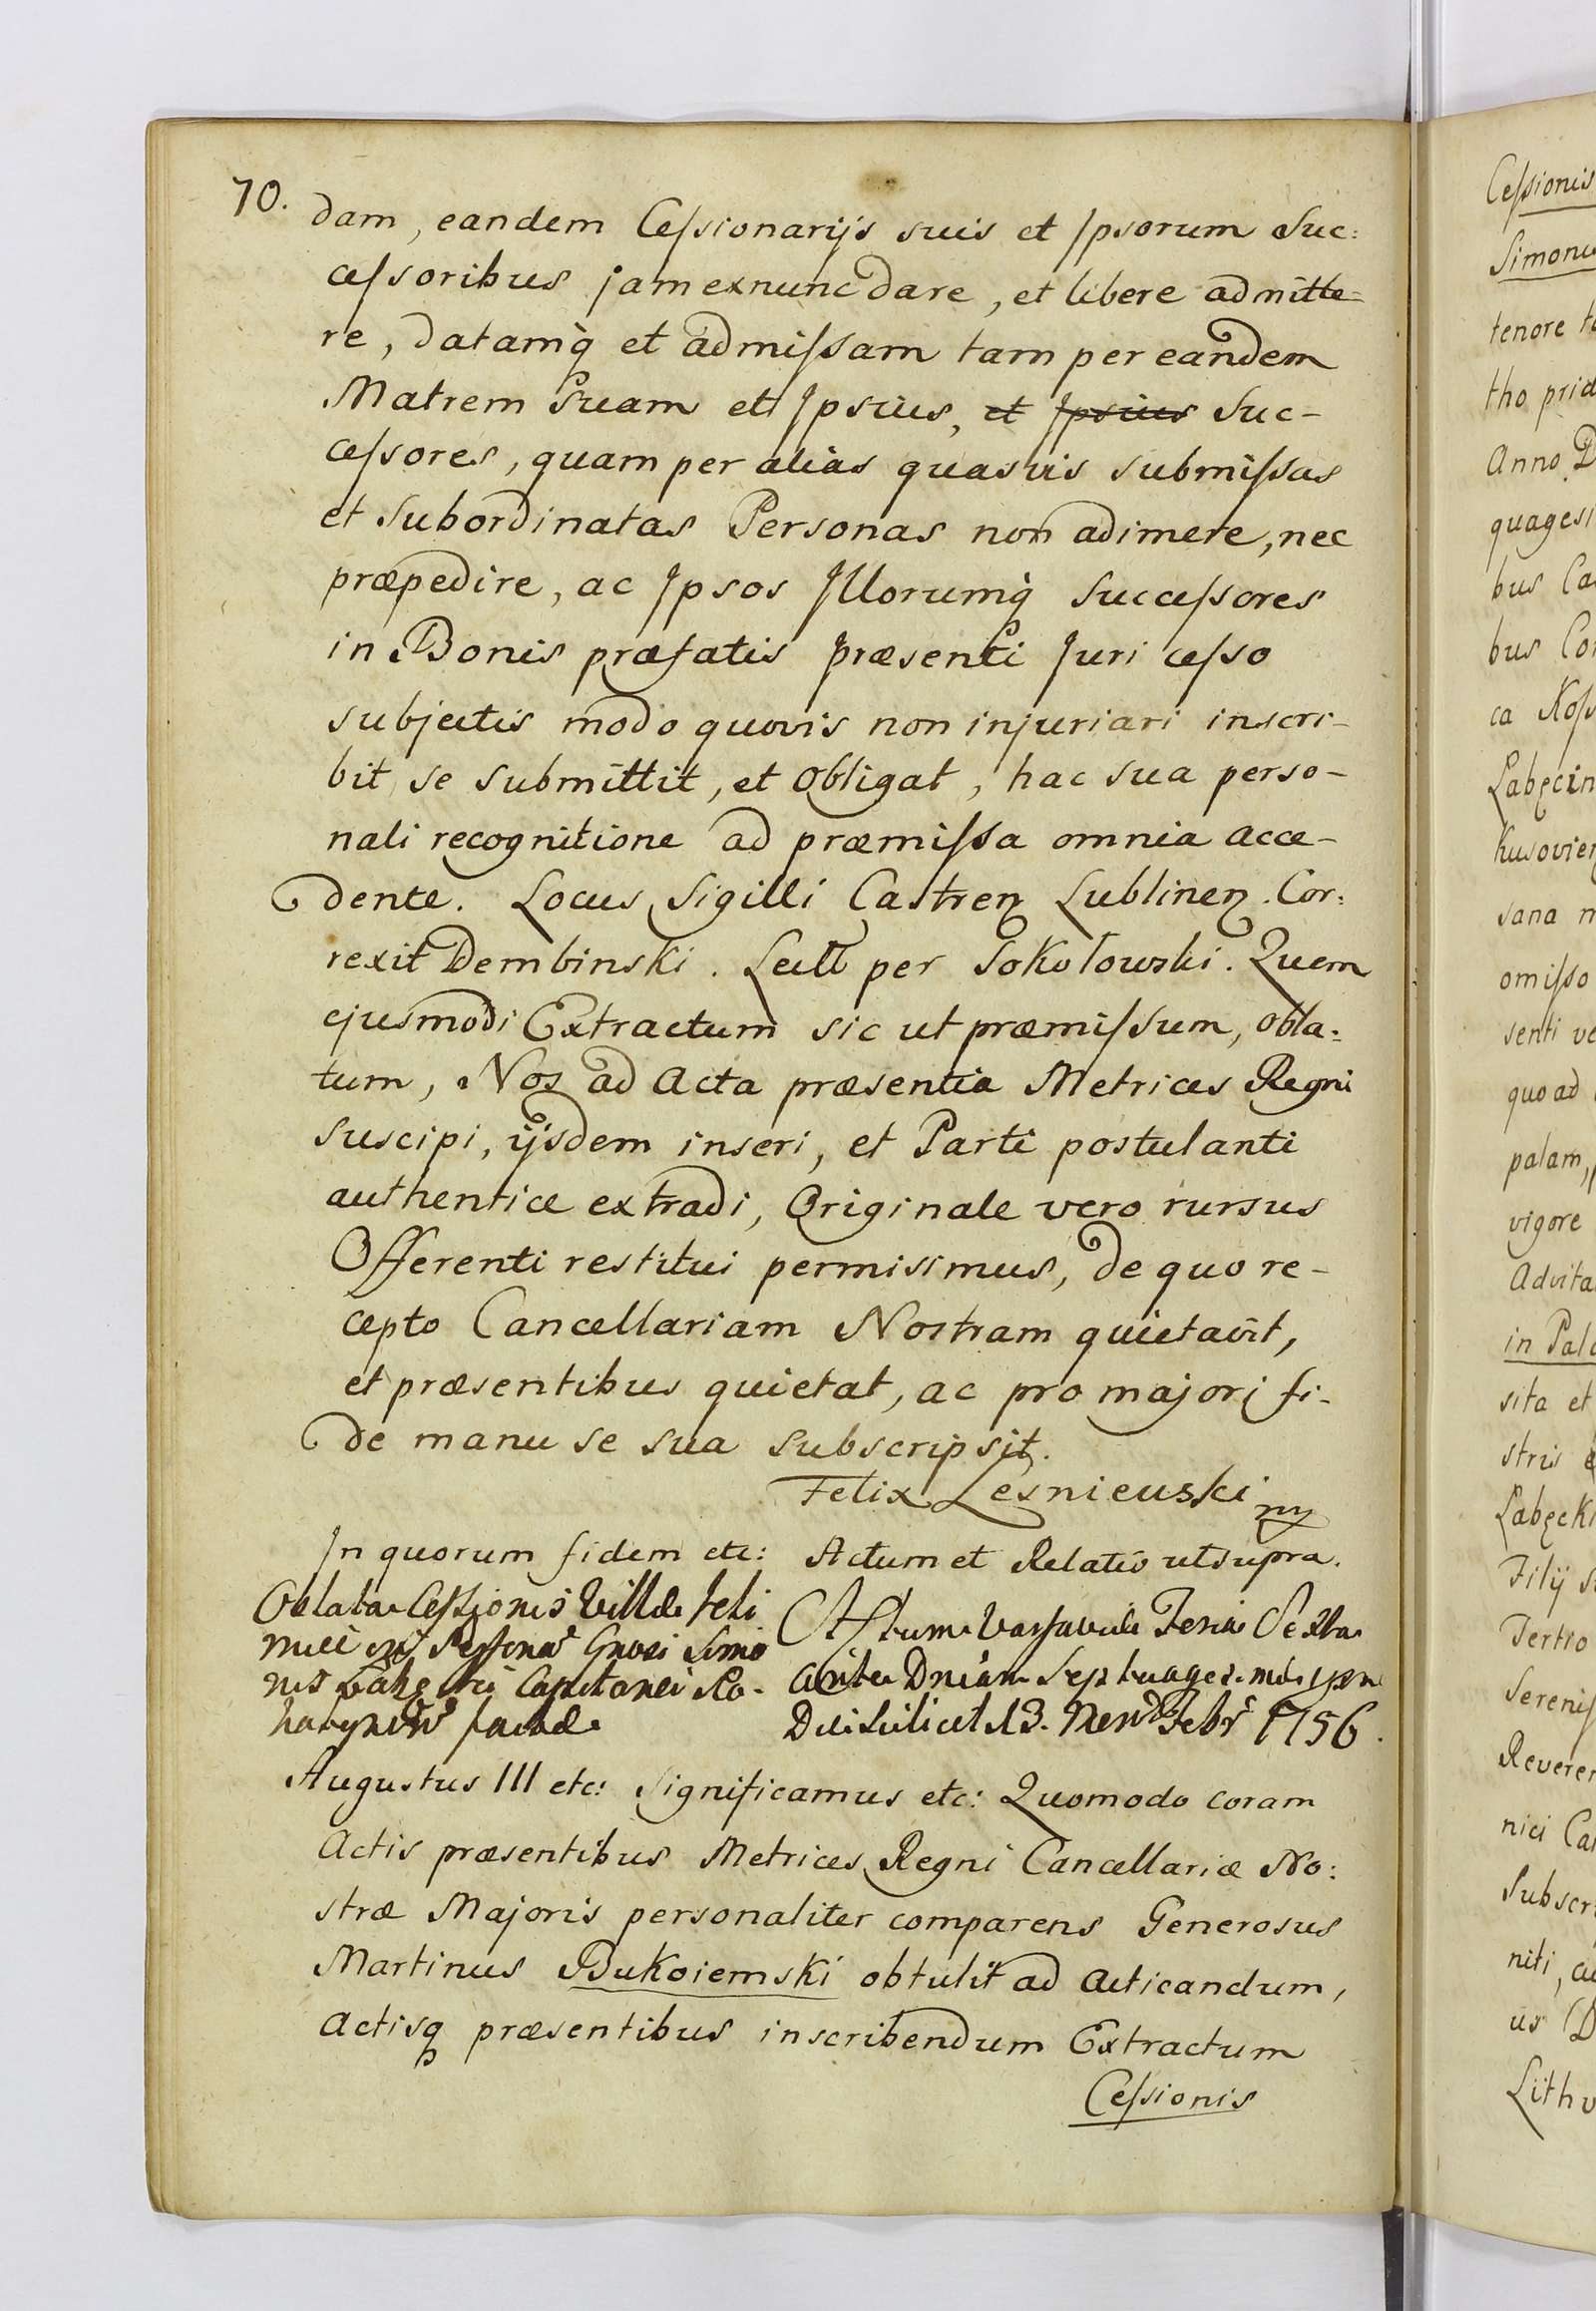 70.
dam, eandem Cessionarijs suis et Ipsorum Suc:
cessoribus jam exnunc dare, et libere admitte=
re, datamq̀ et admissam tam per eandem
Matrem Suam et Ipsius, et Ipsius Suc-
cessores, quam per alias quasvis submissas
et Subordinatas Personas non adimere, nec
præpedire, ac Ipsos Illorumq̀ Successores
in Bonis præfatis præsenti Juri cesso
subjectis modo quovis non injuriari inscri-
bit se submittit, et obligat, hac sua perso-
nali recognitione ad præmissa omnia acce-
dente. Locus Sigilli Castren Lublinen. Cor:
rexit Dembinski. Lectt per Sokołowski. Quem
ejusmodi Extractum sic ut præmissum, obla:
tum, Nos ad Acta præsentia Metrices Regni
suscipi, ijsdem inseri, et Parti postulanti
authentice extradi, Originale vero rursus
Offerenti restitui permisimus, de quo re-
cepto Cancellariam Nostram quietavit,
et præsentibus quietat, ac pro majori fi-
de manu se sua subscripsit.
Felix Lesniewski mp
In quorum fidem etc: Actum et Relatio ut supra.
Oblata Cessionis Villæ Feli
Gnosi Simo
nis Capitanei
factæ
Actum Varsaviæ Feria Sexta
ante Dnicam Septuagesimæ
Die scilicet 13. Mens Febr 1756.
Augustus III etc: Significamus etc: Quomodo coram
Actis præsentibus Metrices Regni Cancellariæ No:
stræ Majoris personaliter comparens Generosus
Martinus Bukoiemski obtulit ad acticandum,
Actisq præsentibus inscribendum Extractum
Cessionis
Cessionis
Simonis
tenore
tho prid
Anno D
quagesi
bus Ca
bus Co
ca Koss
Łabęcin
kusovien
sana
omisso
senti ve
quo ad
palam,
vigore
Advita
in Pala
sita et
stris
Łabęcki
Filij
Tertio
Sereniss
Reveren
nici Ca
Subscri
niti,
us D
Lithv